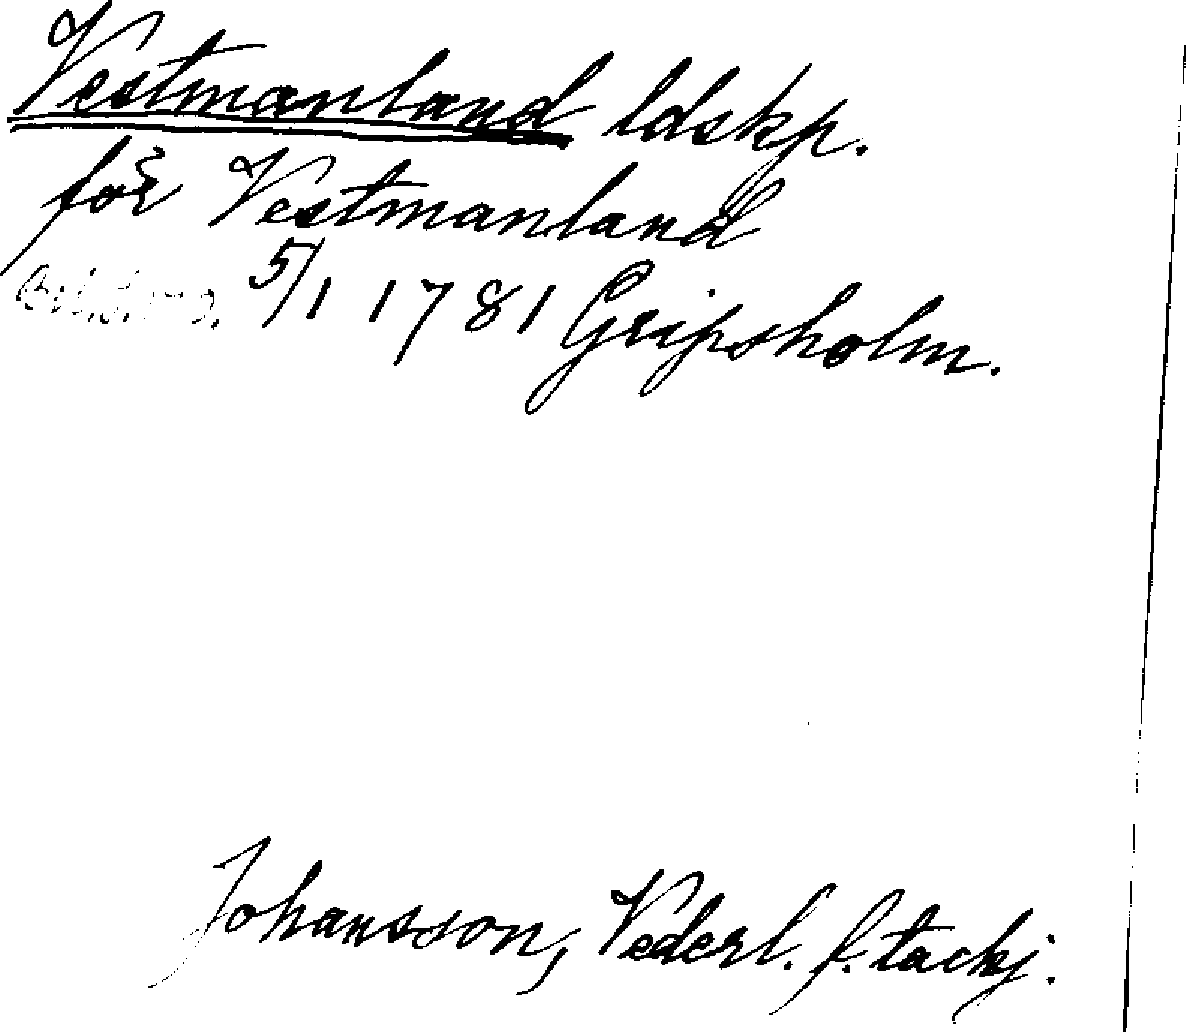 Vestmanland ldskp.
för Vestmanland
5/1 1781 Gripsholm.
Johansson, Vederl. f. tackj.